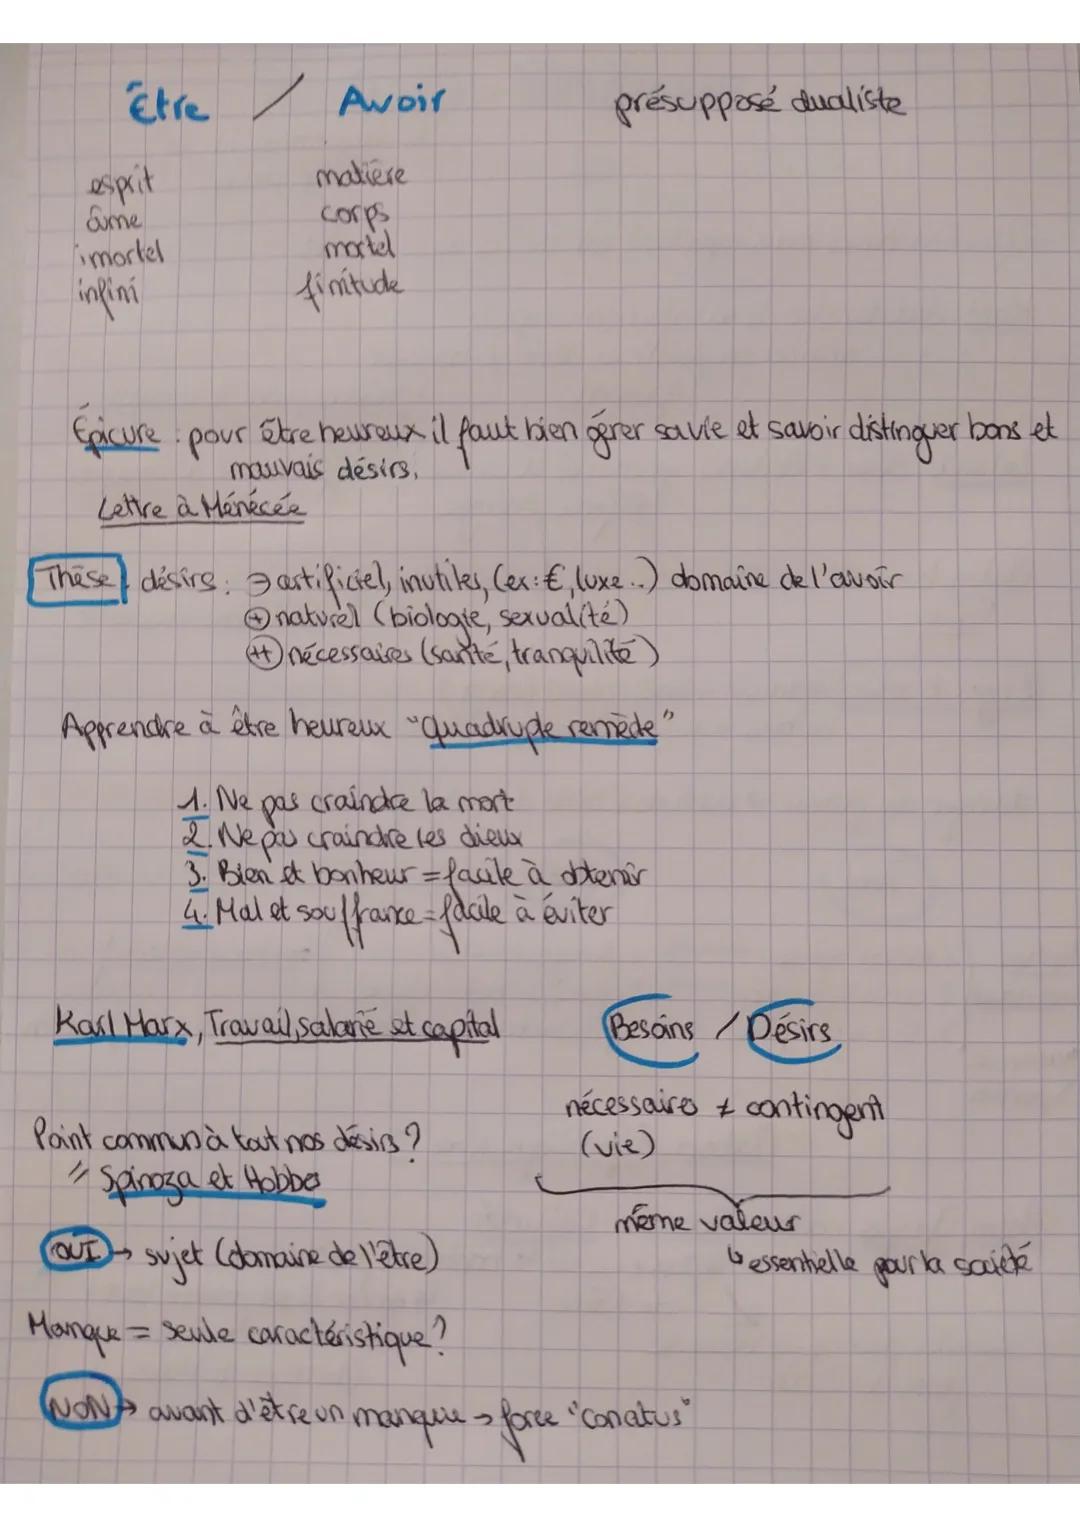 Être / Avoir présupposé dualiste
esprit matière
âme corps
imortel mortel
infini finitude
Épicure : pour être heureux il faut bien gérer sa vie et savoir distinguer bons et
mauvais désirs.
Lettre à Ménécée
Thèse désirs : ⊖ artificiel, inutiles, (ex: €, luxe..) domaine de l'avoir
⊕ naturel (biologie, sexualité)
(++) nécessaires (santé, tranquilité)
Apprendre à être heureux "quadruple remède"
1. Ne pas craindre la mort
2. Ne pas craindre les dieux
3. Bien et bonheur = facile à obtenir
4. Mal et souffrance = facile à éviter
Karl Marx, Travail, salarié et capital
Besoins / Désirs
nécessaire ≠ contingent
(vie)
même valeur
↳ essentielle pour la société
Point commun à tout nos désirs ?
Spinoza et Hobbes
OUI → sujet (domaine de l'être)
Manque = seule caractéristique ?
NON → avant d'être un manque → force "conatus"